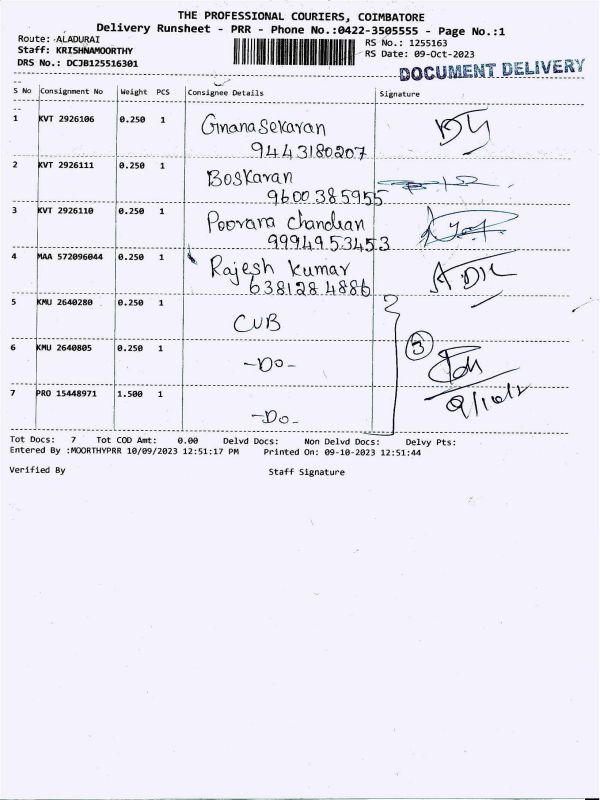 THE PROFESSIONAL COURIERS, COIMBATORE
Delivery Runsheet - PRR - Phone No.:0422-3505555 - Page No.:1
Route: ALADURAI RS No.: 1255163
Staff: KRISHNAMOORTHY RS Date: 09-Oct-2023
DRS No.: DCJB125516301
DOCUMENT DELIVERY
S No Consignment No Weight PCS Consignee Details Signature
1 KVT 2926106 0.250 1 Gnanasekaran
9443180207
2 KVT 2926111 0.250 1 Boskaran
9600385955
3 KVT 2926110 0.250 1 Poovara Chandian
9994953453
4 MAA 572096044 0.250 1 Rajesh Kumar
6381284886
5 KMU 2640280 0.250 1 CUB
6 KMU 2640805 0.250 1 -Do- 3
7 PRO 15448971 1.500 1 -Do-
Tot Docs: 7 Tot COD Amt: 0.00 Delvd Docs: Non Delvd Docs: Delvy Pts:
Entered By :MOORTHYPRR 10/09/2023 12:51:17 PM Printed On: 09-10-2023 12:51:44
Verified By Staff Signature